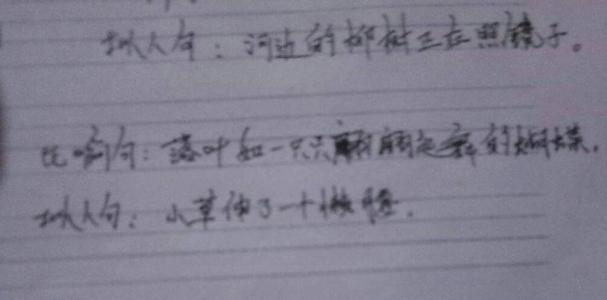 拟人句：河边的柳树正在照镜子。
比喻句：落叶如一只只翩翩起舞的蝴蝶。
拟人句：小草伸了一个懒腰.